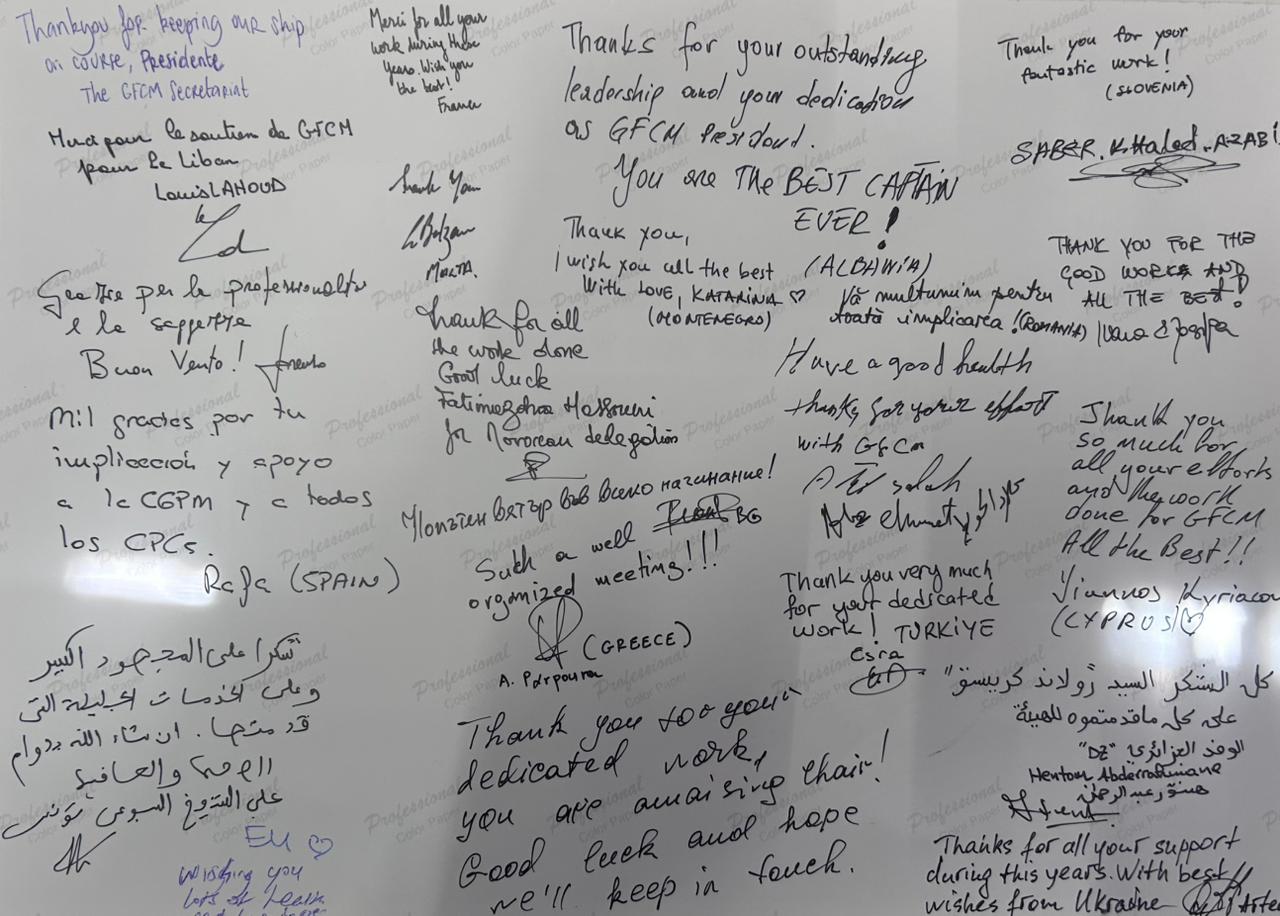 Thankyou for keeping our ship
on course, Presidente
The GFCM Secretariat
Merci pour le soutien de GFCM
pour le Liban
Louis LAHOUD
Grazie per la professionalità
e la saggezza
Buon Vento!
Mil gracias por tu
implicación y apoyo
a la CGPM y a todos
los CPCs.
Rafa (SPAIN)
شكرا على المجهود الكبير
وعلى الخدمات الجليلة التي
قدمتها. ان شاء الله بدوام
الصحة والعافية
على
تونس
EU ♡
wishing you
lots of health
Merci for all your
work during these
years. Wish you
the best!
France
Thank You
MALTA.
Thank for all
the work done
Good luck
Fatimazohra Hassouni
for Moroccan delegation
Попътен вятър във всяко начинание!
BG
Such a well
organized meeting!!!
(GREECE)
A.
Thank you for your
dedicated work,
you are amaising chair!
Good luck and hope
we'll keep in touch.
Thanks for your outstanding
leadership and your dedication
as GFCM President.
You are THE BEST CAPTAIN
EVER!
(ALBANIA)
Thank you,
I wish you all the best
With LOVE, KATARINA ♡
(MONTENEGRO)
Vă multumim pentru
toată implicarea! (ROMANIA)
Have a good health
thanks for your effort
with GFCM
Thank you very much
for your dedicated
work! TÜRKİYE
Esra
Thank you for your
fantastic work!
(SLOVENIA)
SABER. KHaled. AZABI
THANK YOU FOR THE
GOOD WORKS AND
ALL THE BEST!
Thank you
so much for
all your efforts
and the work
done for GFCM
All the Best!!
Yiannos Kyriacou
(CYPRUS) ♡
كل الشكر السيد "رولاند كريستو"
على كل ما قدمتموه للهيئة
الوفد الجزائري "DZ"
Hentour Abderrahmane
عبد الرحمان
Thanks for all your support
during this years. With best
wishes from Ukraine
Professional
Color Paper